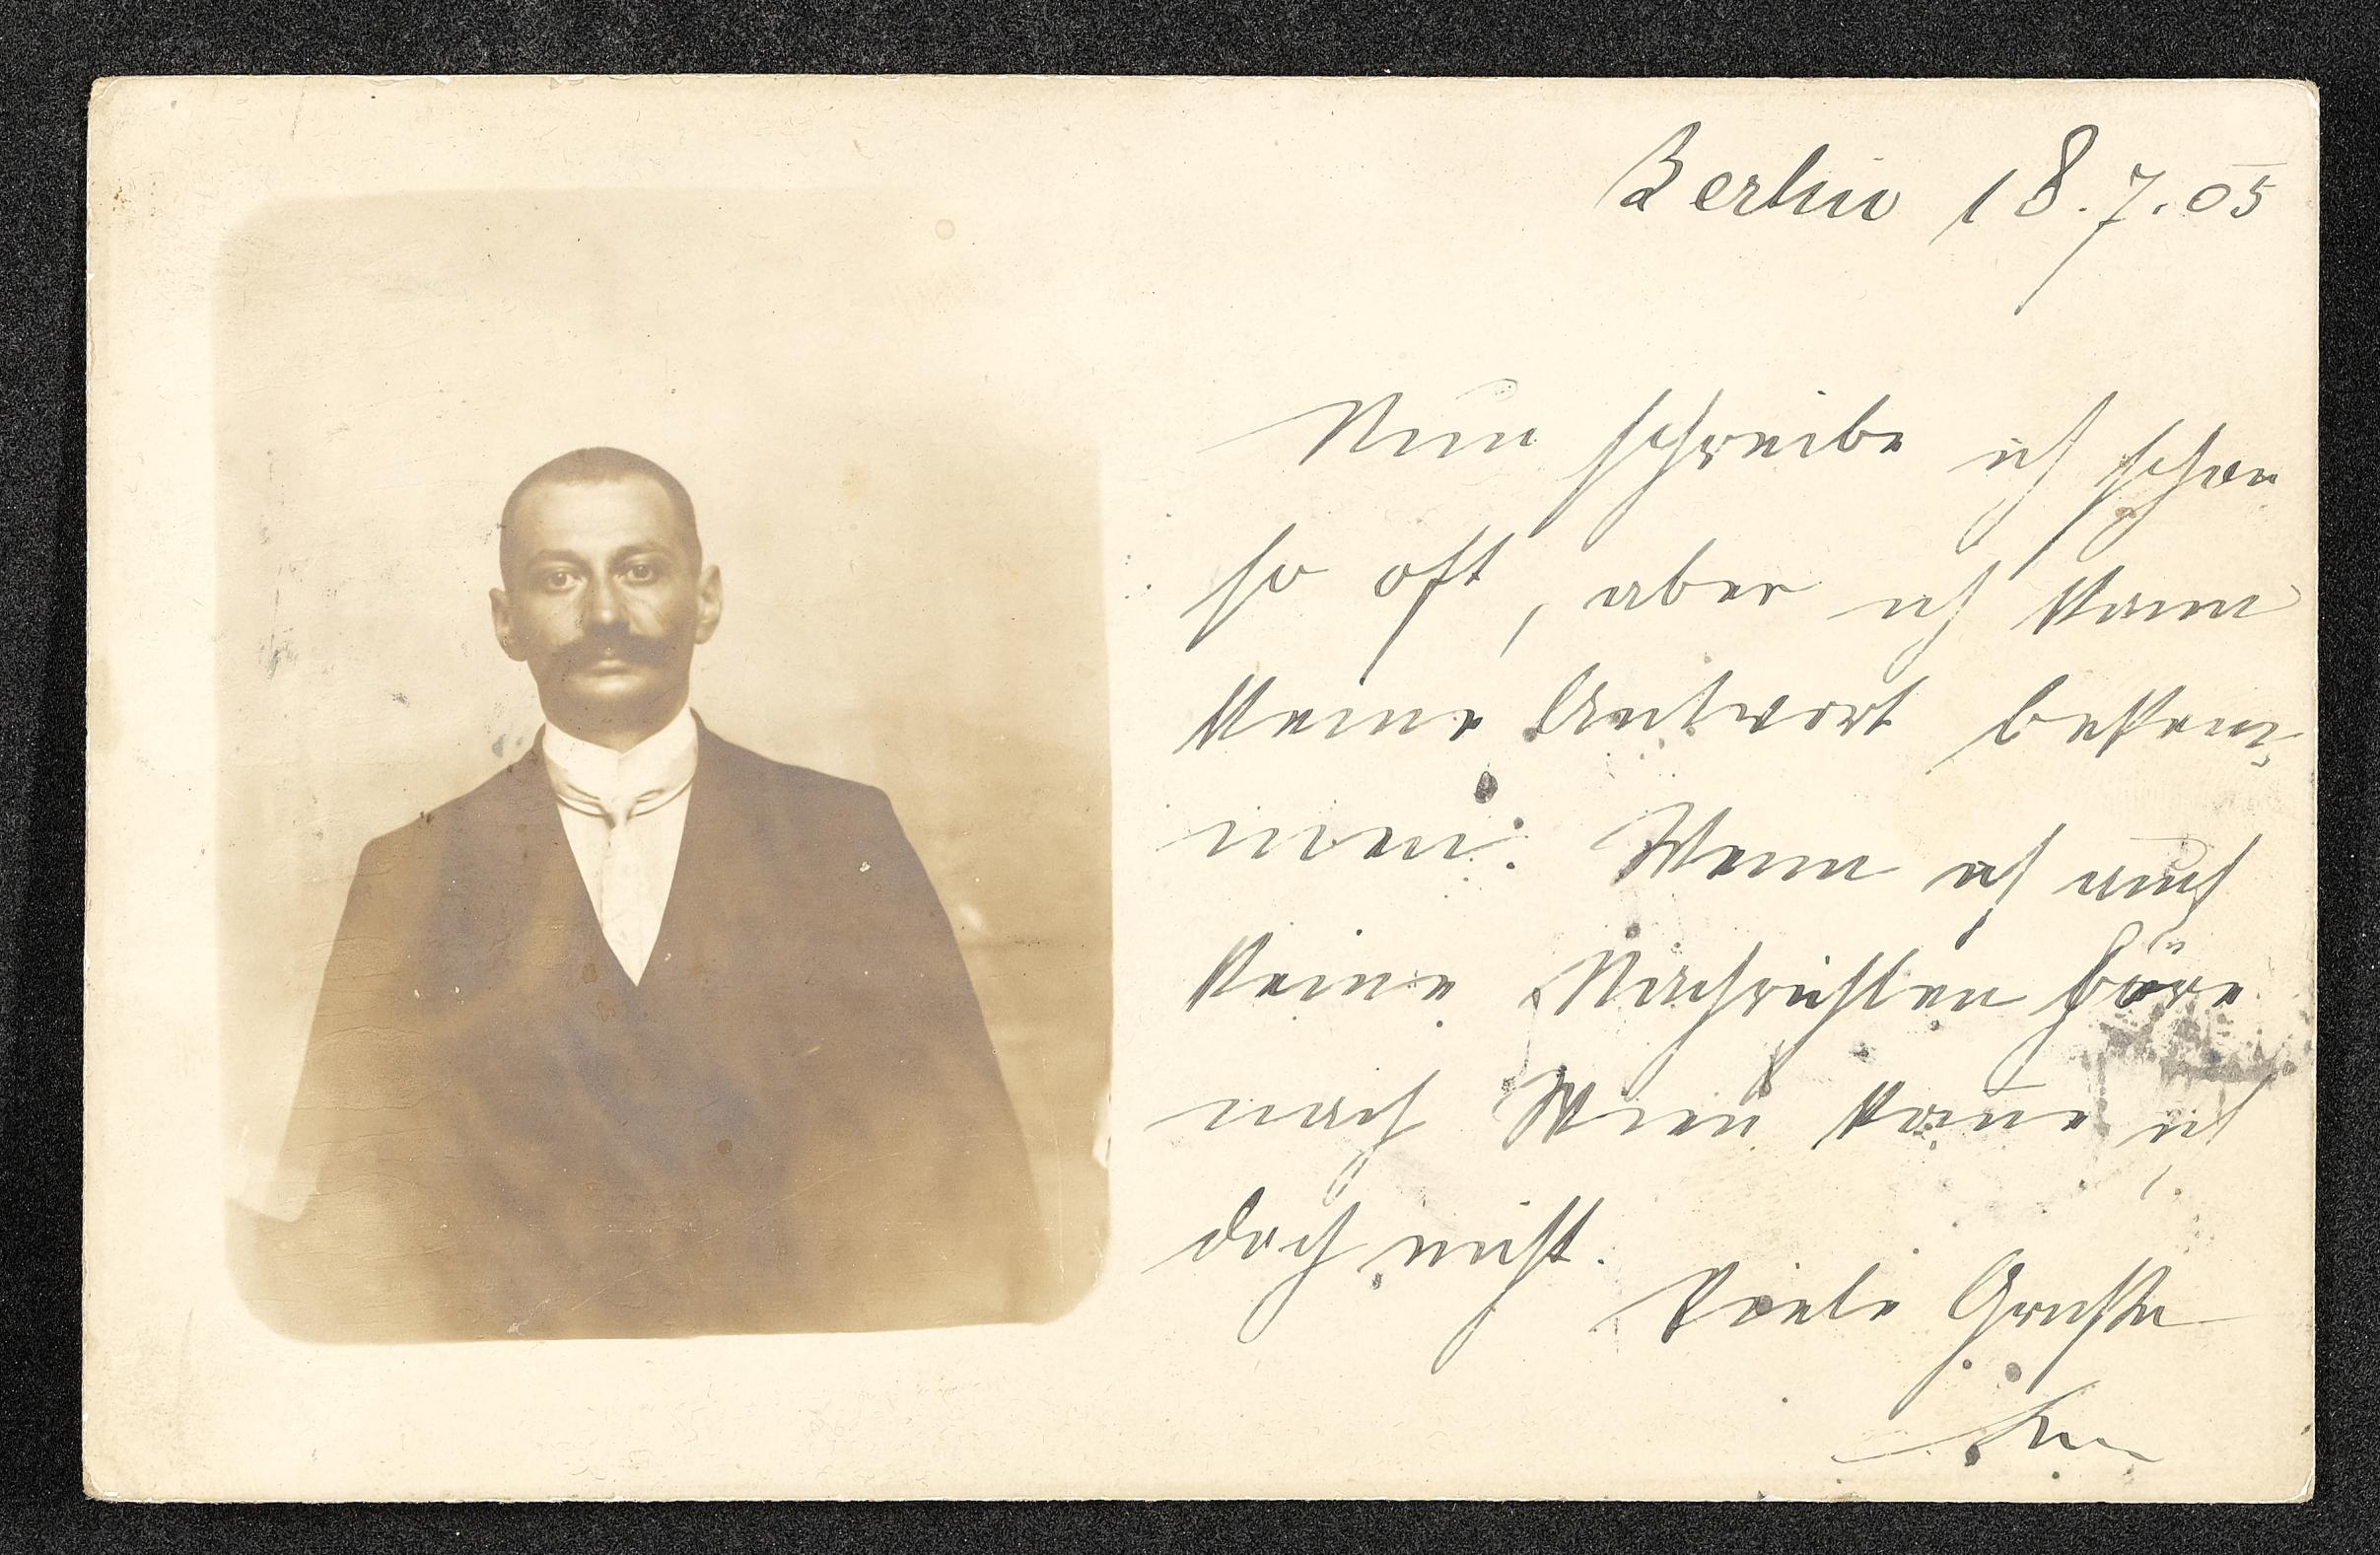 Berlin 18.7.05
Nun schreibe ich schon
so oft, aber ich kann
keine Antwort bekom¬
men. Wenn ich auch
keine Nachrichten höre
nach Wien komme ich
doch nicht.
Viele Grüße